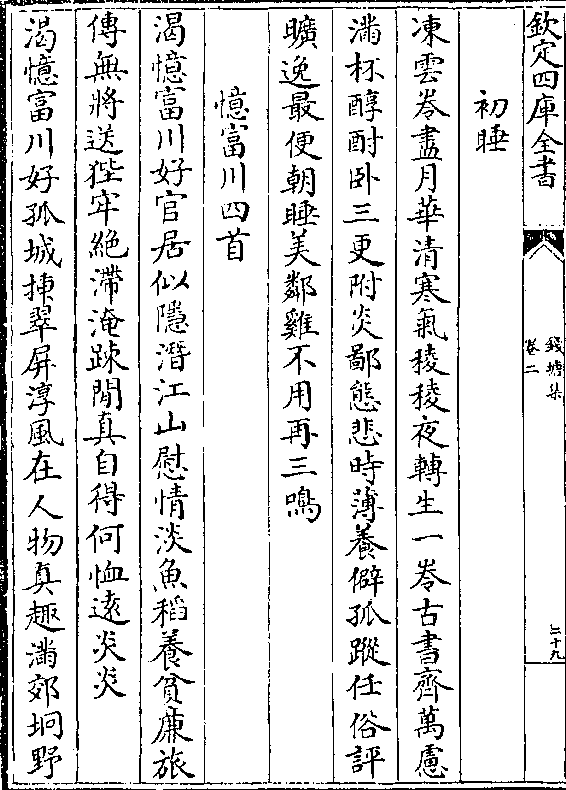 欽定四庫全書
錢塘集
卷二
二十九
初睡
凍雲岑盡月華清寒氣稜稜夜轉生一岑古書齊萬慮
滿杯醇酎卧三更附炎鄙態悲時薄養僻孤蹤任俗評
曠逸最便朝睡美鄰雞不用再三鳴
憶富川四首
渴憶富川好官居似隱潛江山慰情淡魚稻養貧廉旅
傳無將送狴牢絶滯淹踈閒真自得何恤逺炎炎
渴憶富川好孤城揀翠屏淳風在人物真趣滿郊坰野